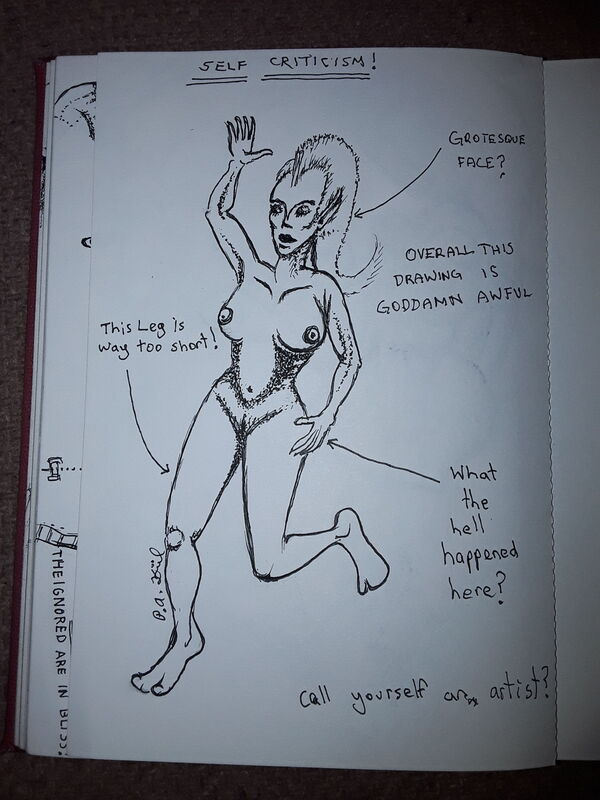 SELF CRITICISM!
GROTESQUE
FACE?
OVERALL THIS
DRAWING IS
GODDAMN AWFUL
This Leg is
way too short!
What
the
hell
happened
here?
call yourself an artist?
THE IGNORED ARE IN